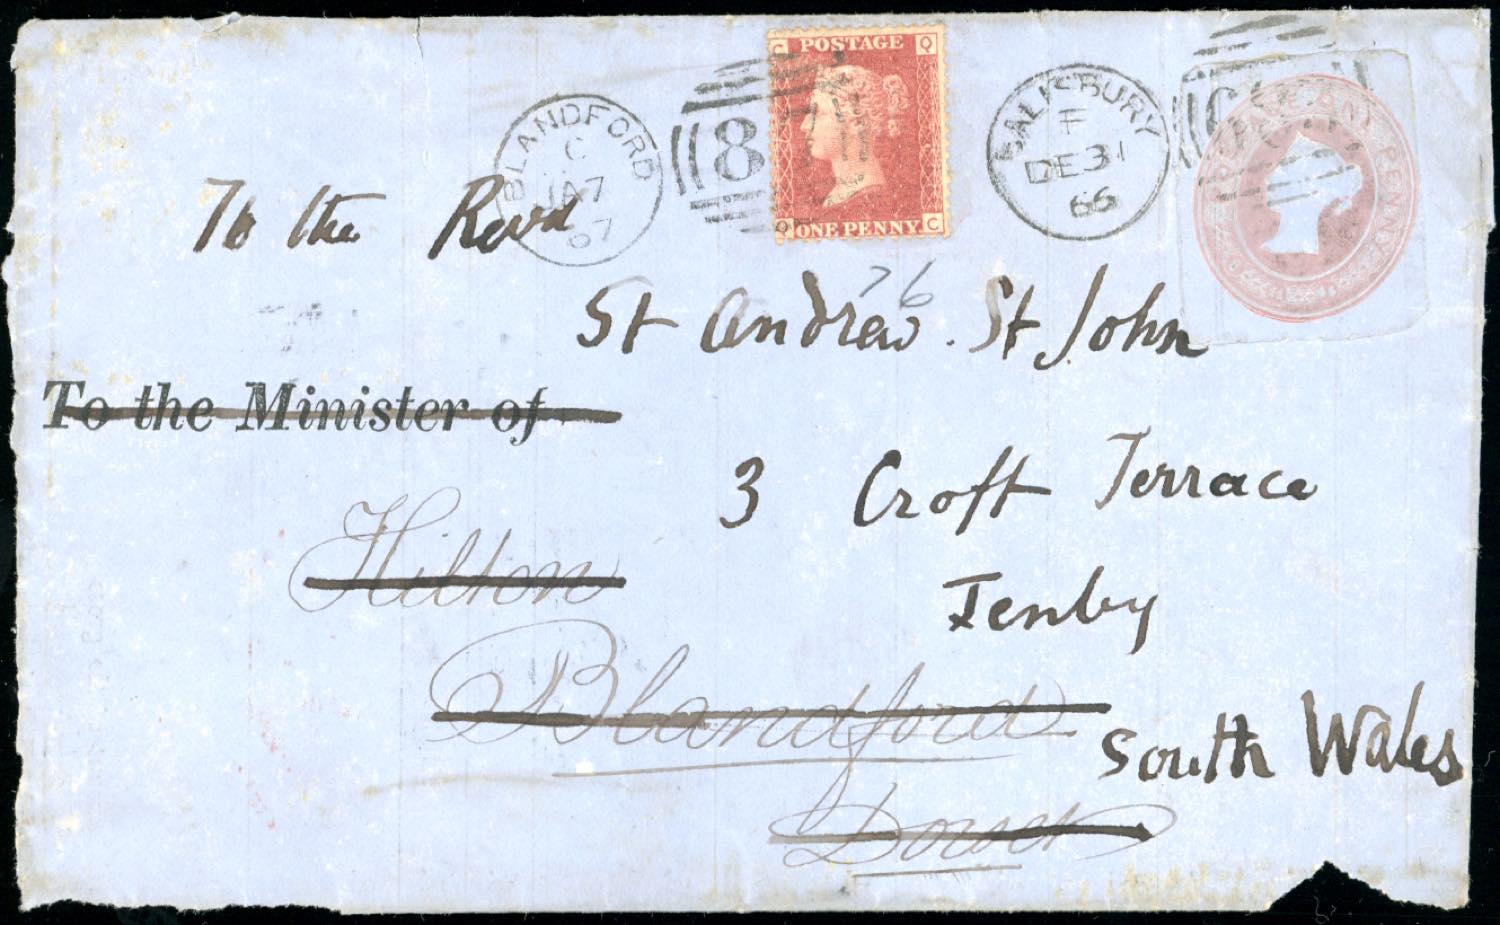 C POSTAGE Q
Q ONE PENNY C
BLANDFORD
C
JA 7
67
8
SALISBURY
F
DE 31
66
ONE PENNY
To the Revd
76
St Andrew. St John
To the Minister of
3 Croft Terrace
Hilton
Tenby
Blandford
South Wales
Dorset